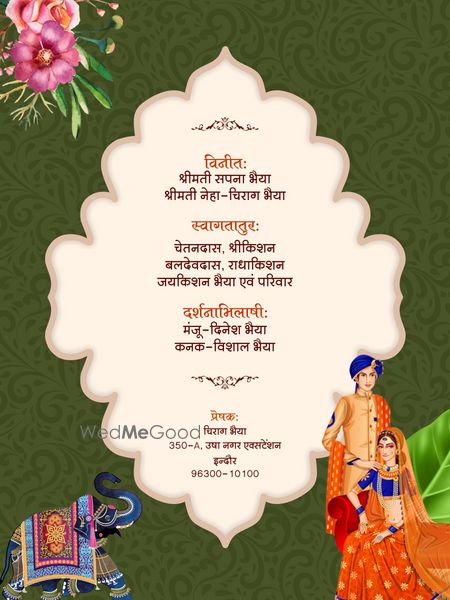 विनीतः
श्रीमती सपना भैया
श्रीमती नेहा-चिराग भैया
स्वागतातुरः
चेतनदास, श्रीकिशन
बलदेवदास, राधाकिशन
जयकिशन भैया एवं परिवार
दर्शनाभिलाषीः
मंजू-दिनेश भैया
कनक-विशाल भैया
प्रेषकः
चिराग भैया
WedMeGood
350-A, उषा नगर एक्सटेंशन
इन्दौर
96300-10100